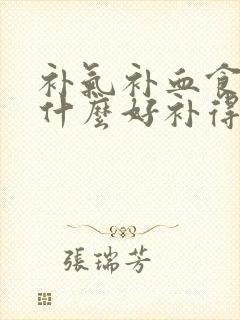 补氣补血食
什麼好补得
張瑞芳